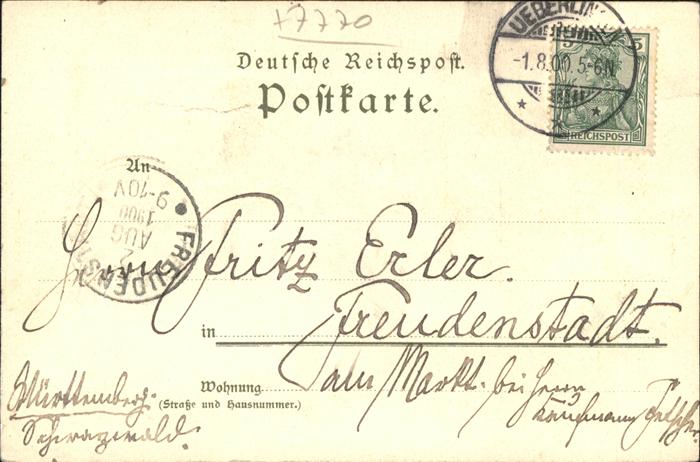 +7770
UEBERLIN
-1.8.00 5-6N
5 5
REICHSPOST
Deutsche Reichspost.
Postkarte.
An
9-10V
1900
AUG
2
FREUDENST
Herrn Fritz Erler.
in Freudenstadt.
Wohnung am Markt. bei Herrn
(Straße und Hausnummer.) Kaufmann
Württemberg.
Schwarzwald.